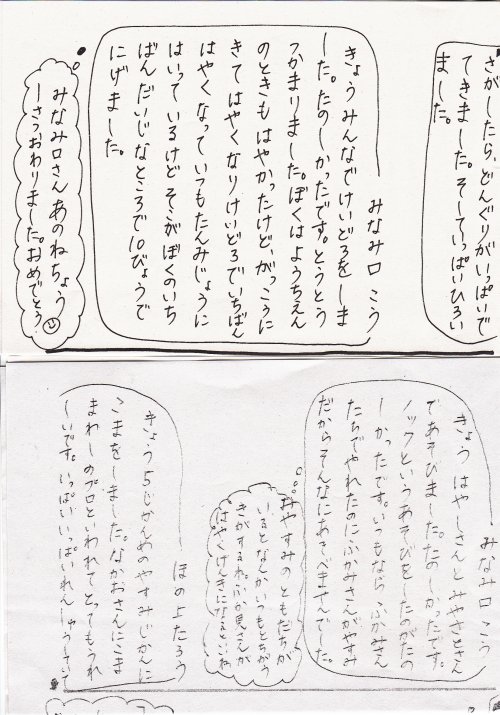 さがしたら、どんぐりがいっぱいで
てきました。そしていっぱいひろい
ました。
みなみ口 こう
きょうみんなでけいどろをしま
した。たのしかったです。とうとう
つかまりました。ぼくはようちえん
のときもはやかったけど、がっこうに
きてはやくなりけいどろでいちばん
はやくなっていつもたんみじょうに
はいっているけどそこがぼくのいち
ばんだいじなところで10びょうで
にげました。
みなみ口さん あのねちょう
一さつおわりました。おめでとう
みなみ口 こう
きょう はやしさんとみやさとさん
であそびました。たのしかったです。
ノックというあそびをしたのがたの
しかったです。いつもなら ふかみさん
たちでやれたのにふかみさんがやすみ
だからそんなにあそべませんでした。
おやすみのともだちが
いるとなんかいつもとちがう
きがするね。ふか見さんが
はやくげんきになるといいね
ほの上たろう
きょう 5じかんめのやすみじかんに
こまをしました。なかおさんにこま
まわしのプロといわれてとってもうれ
しいです。いっぱいいっぱいれんしゅうしてい